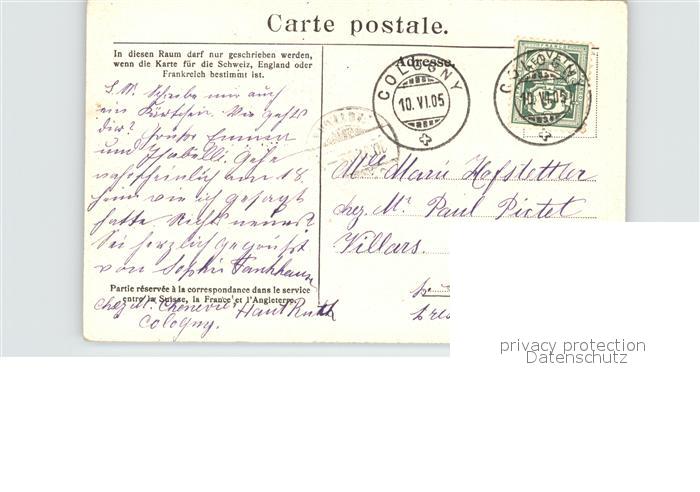 Carte postale.
In diesen Raum darf nur geschrieben werden,
wenn die Karte für die Schweiz, England oder
Frankreich bestimmt ist.
Adresse.
COLOGNY
10.VI.05
COLOGNY
10.VI.05
S. W. Schreibe mir auch
ein Kärtchen. Wie gehts
dir? Grüsse Emma
und Isabelli. Gehe
wahrscheinlich am 18.
heim wie ich gesagt
hatte. Nichts neues?
Sei herzlich gegrüsst
von Sophie Fankhauser
Partie réservée à la correspondance dans le service
entre la Suisse, la France et l'Angleterre.
chez M. Chenevière
Cologny.
Mlle Marie Hofstettler
chez Mr Paul Pictet
Villars.
privacy protection
Datenschutz